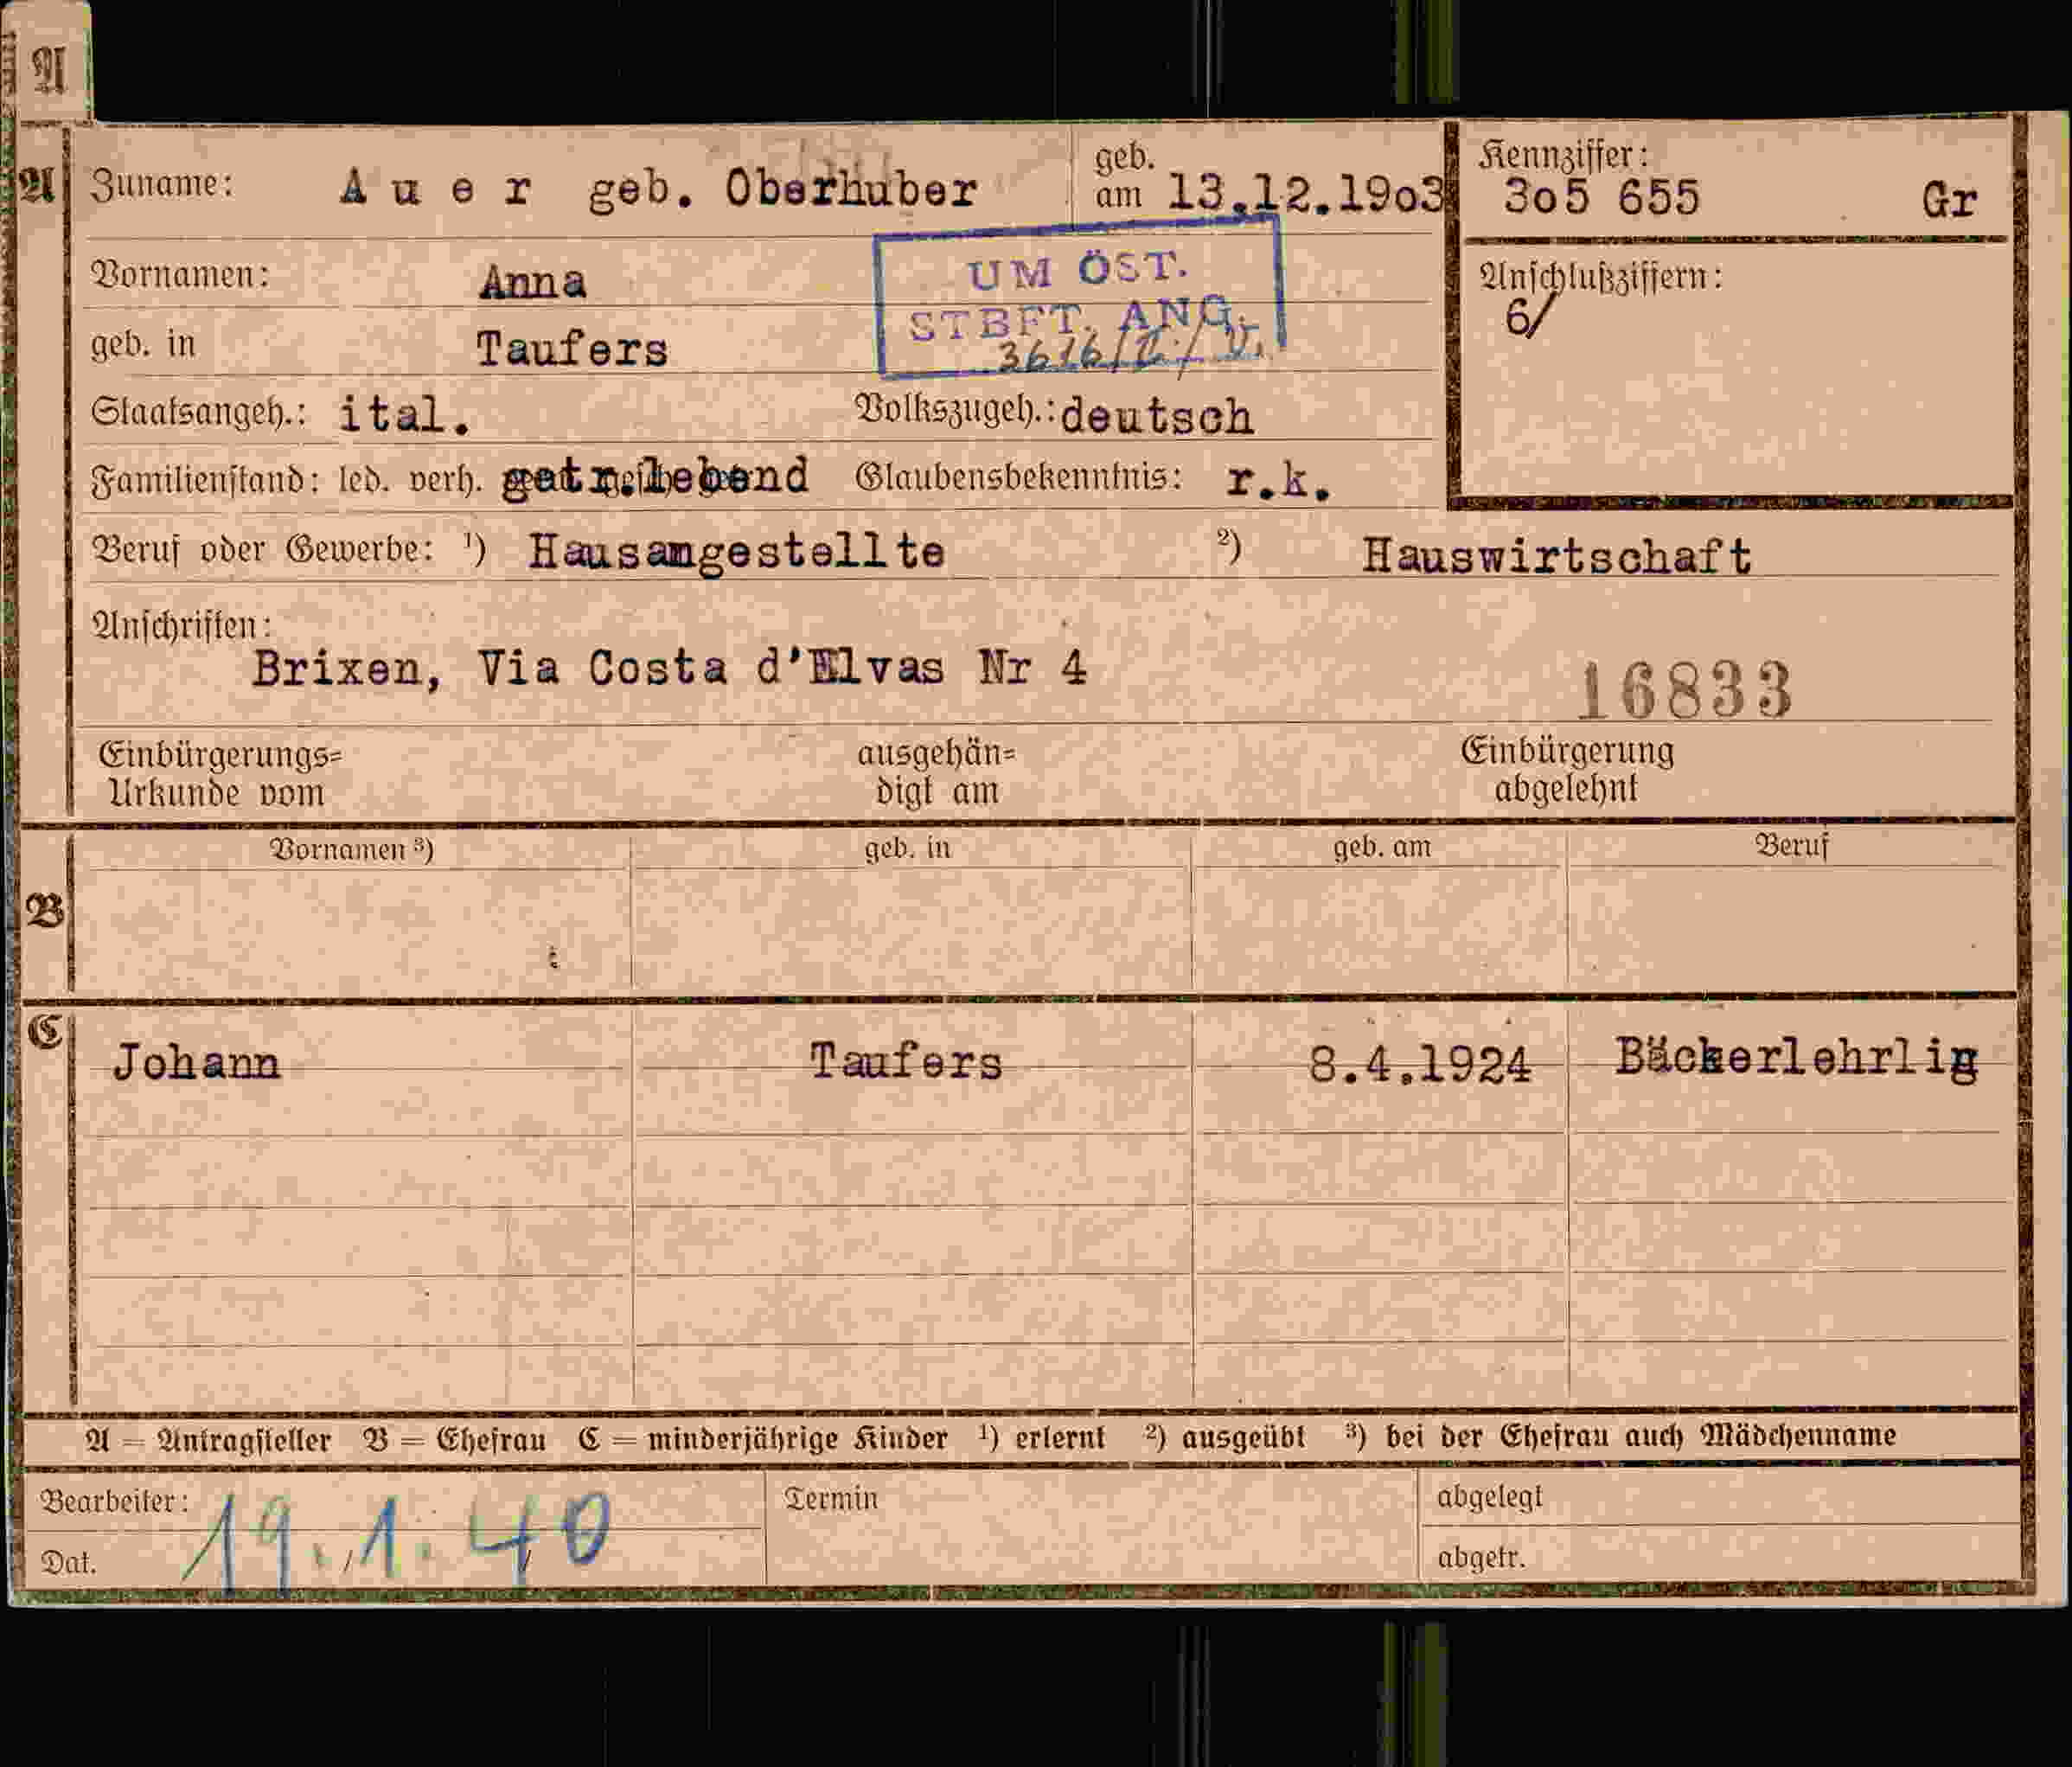 A
A Zuname: Auer geb. Oberhuber geb. am 13.12.19o3 Kennziffer: 3o5 655 Gr
Vornamen: Anna UM ÖST. Anschlußziffern:
STBFT. ANG. 6/
geb. in Taufers
Staatsangeh.: ital. Volkszugeh.: deutsch
Familienstand: led. verh. getr.lebend Glaubensbekenntnis: r.k.
Beruf oder Gewerbe: ¹) Hausangestellte ²) Hauswirtschaft
Anschriften:
Brixen, Via Costa d'Elvas Nr 4 16833
Einbürgerungs= ausgehän= Einbürgerung
Urkunde vom digt am abgelehnt
Vornamen ³) geb. in geb. am Beruf
B
C Johann Taufers 8.4.1924 Bäckerlehrlig
A = Antragsteller B = Ehefrau C = minderjährige Kinder ¹) erlernt ²) ausgeübt ³) bei der Ehefrau auch Mädchenname
Bearbeiter: Termin abgelegt
Dat. 19.1.40 abgetr.